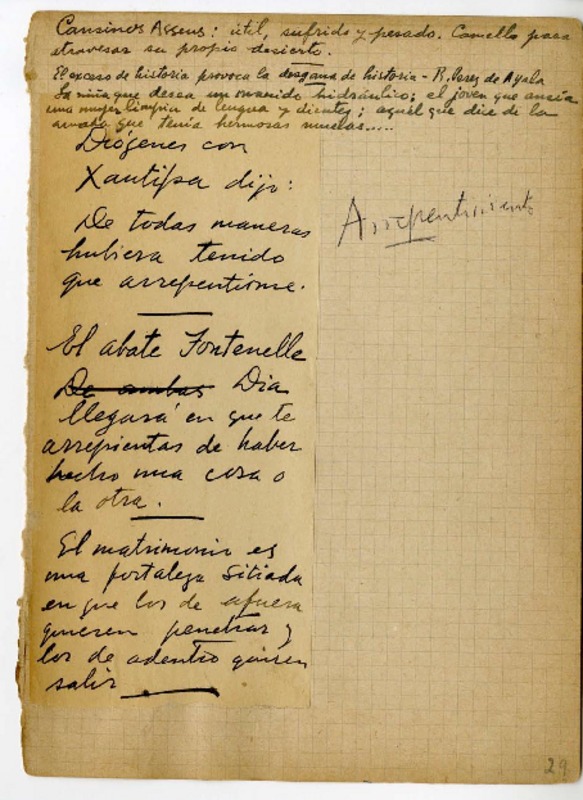 Cansinos Assens: útil, sufrido y pesado. Camello para
atravesar su propio desierto.
El exceso de historia provoca la desgana de historia - R. Perez de Ayala
La niña que desea un marido hidráulico; el joven que ansía
una mujer limpia de lengua y dientes; aquel que dice de la
amada que tenía hermosas muelas.....
Diógenes con
Xantipa dijo:
De todas maneras
hubiera tenido
que arrepentirme.
Arrepentimiento
El abate Fontenelle
De ambas Dia
llegará en que te
arrepientas de haber
hecho una cosa o
la otra.
El matrimonio es
una fortaleza sitiada
en que los de afuera
quieren penetrar y
los de adentro quieren
salir
29